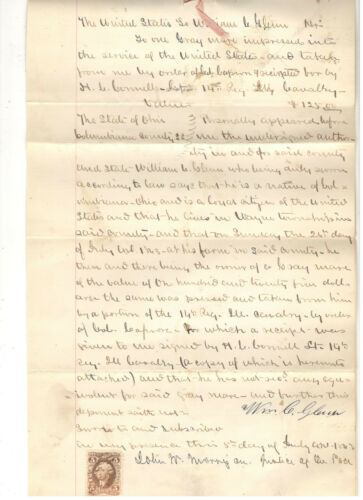 The United States To William C. Glenn Dr.
To one Gray mare impressed into
the service of the United States and taken
from me by order of Col. Capron & receipted for by
H. C. Connelly Lt. 14th Reg Ills Cavalry
Value $125.00
The State of Ohio } Personally appeared before
Columbiana County SS } me the undersigned author-
ity in and for said county
and State William C. Glenn who being duly sworn
according to law says that he is a native of Col-
umbiana Ohio and is a loyal citizen of the United
States and that he lives in Wayne township in
said county and that on Sunday the 26th day
of July A.D. 1863 at his farm in said county he
then and there being the owner of a Gray mare
of the value of One hundred and twenty five doll-
ars the same was pressed and taken from him
by a portion of the 14th Reg. Ill. Cavalry by order
of Col. Capron for which a receipt was
given to me signed by H. C. Connelly Lt. 14th
Reg. Ill Cavalry (a copy of which is hereunto
attached) and that he has not recd. any equ-
ivalent for said gray mare and further this
deponent saith not
Wm. C. Glenn
Sworn to and subscribed
in my presence this 5th day of July A.D.
John W. Morrison Justice of the Peace